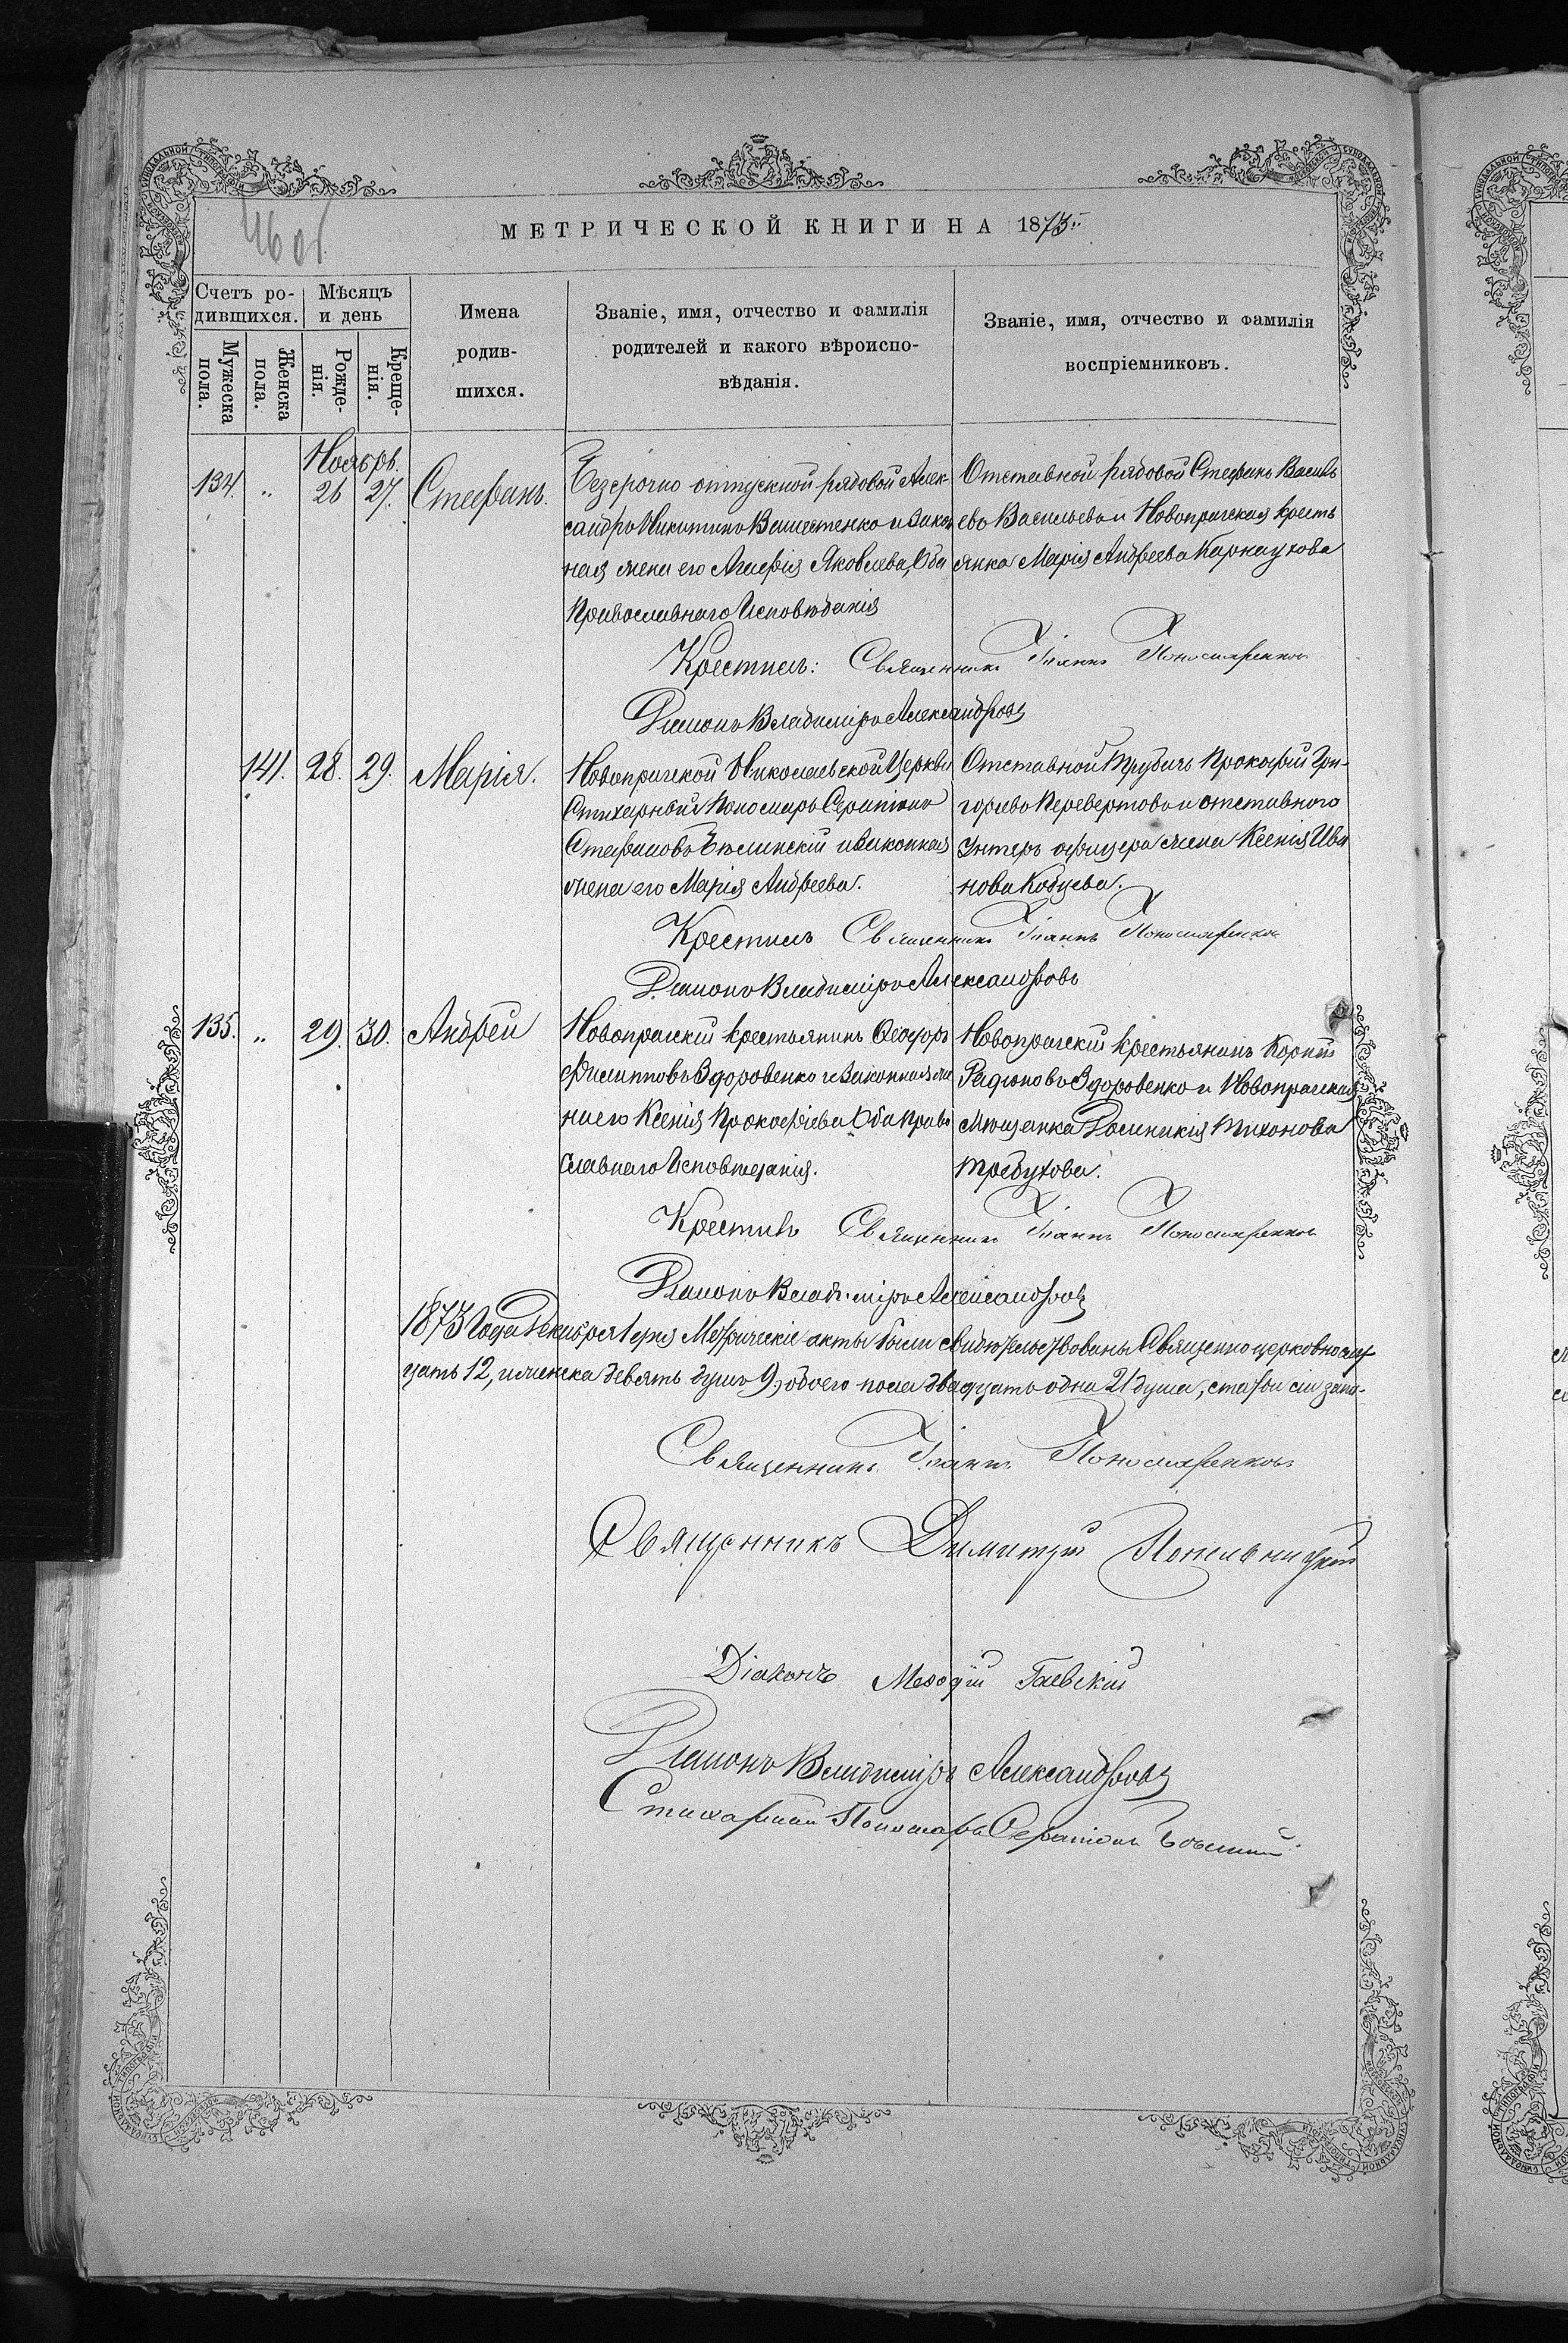 МЕТРИЧЕСКОЙ КНИГИ НА 1873й
Счетъ ро-
дившихся.
Мѣсяцъ
и день
Мужеска
пола.
Женска
пола.
Рожде-
нія.
Креще-
нія.
Имена
родив-
шихся.
Званіе, имя, отчество и фамилія
родителей и какого вѣроиспо-
вѣданія.
Званіе, имя, отчество и фамилія
воспріемниковъ.
Ноябрь.
134. „ 26 27. Стефанъ.
Безсрочно отпускной рядовой Алек-
сандръ Никитинъ и закон
ная жена его Агафія Яковлева, Оба
Православнаго Исповѣданія
Отставной рядовой Стефанъ Василь
евъ Васильевъ и Новопражская кресть
янка Марія Андреева Карнаухова
Крестилъ: Священникъ Іоаннъ Пономаренковъ
Діаконъ Владиміръ Александровъ
141. 28. 29. Марія.
Новопражской Николаевской Церкви
Стихарный Пономарь Серапіонъ
Стефановъ Бѣлинскій и законная
жена его Марія Андреева.
Отставной Трубачъ Прокофій Гри-
горьевъ Перевертовъ и отставного
Унтеръ офицера жена Ксенія Ива
нова Кобцева.
Крестилъ Священникъ Іоаннъ Пономаренковъ
Діаконъ Владиміръ Александровъ
135. „ 29. 30. Андрей
Новопражскій крестьянинъ Ѳеодоръ
Филипповъ Здоровенко и законная же
на его Ксенія Прокофіева Оба Право
славнаго Исповѣданія.
Новопражскій крестьянинъ Корній
Радіоновъ Здоровенко и Новопражская
Мѣщанка Домникія Тихонова
Требухова.
Крестилъ Священникъ Іоаннъ Пономаренковъ
Діаконъ Владиміръ Александровъ
1873 Года Декабря 1 дня Метрическіе акты были свидѣтельствованы Священно церковнослу
цать 12, и женска девять душъ 9, обоего пола двадцать одна 21 душа, статьи сіи запи-
Священникъ Іоаннъ Пономаренковъ
Священникъ Димитрій
Діаконъ Меѳодій Гаевскій
Діаконъ Владиміръ Александровъ
Стихарный Пономарь Серапіонъ Бѣлинскій